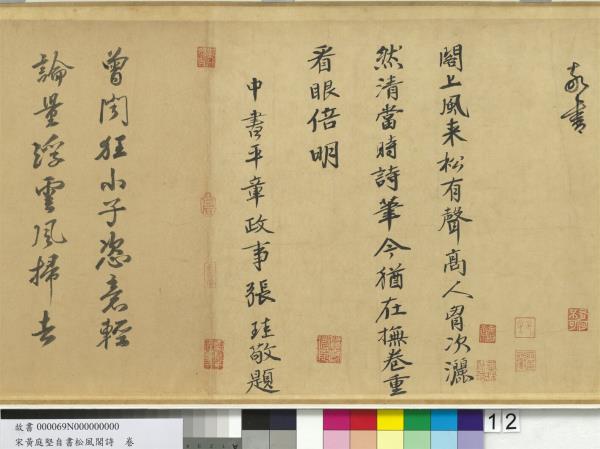 敬書
閣上風来松有聲高人胷次灑
然清當時詩筆今猶在撫卷重
看眼倍明
中書平章政事張珪敬題
曾聞狂小子恣意輕
論量浮雲風掃去
12
故書 000069N000000000
宋黃庭堅自書松風閣詩 卷